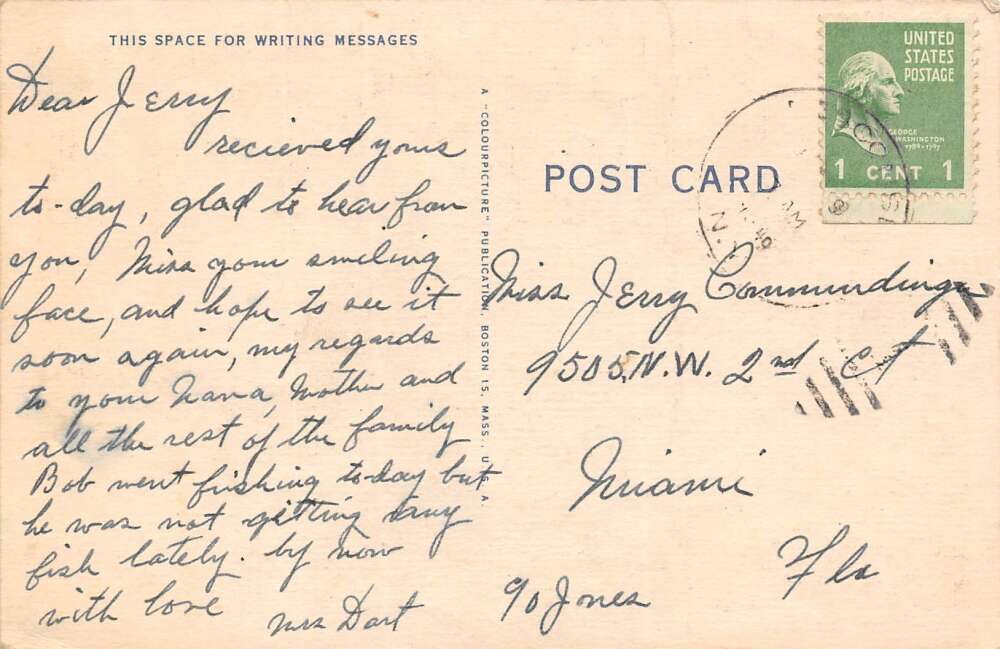 THIS SPACE FOR WRITING MESSAGES
Dear Jerry
recieved yours
to-day, glad to hear from
you, Miss your smiling
face, and hope to see it
soon again, my regards
to your Nana, Mother and
all the rest of the family
Bob went fishing to-day but
he was not getting any
fish lately. by now
with love Mrs Dart
A "COLOURPICTURE" PUBLICATION, BOSTON 15, MASS., U.S.A.
POST CARD
UNITED
STATES
POSTAGE
GEORGE
WASHINGTON
1789-1797
1 CENT 1
AM
N.
Miss Jerry Commundinger
9505, N.W. 2nd Ct
Miami
Fla
c/o Jones